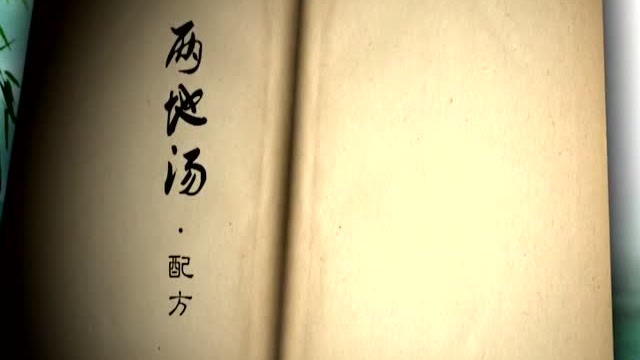 两地汤·配方